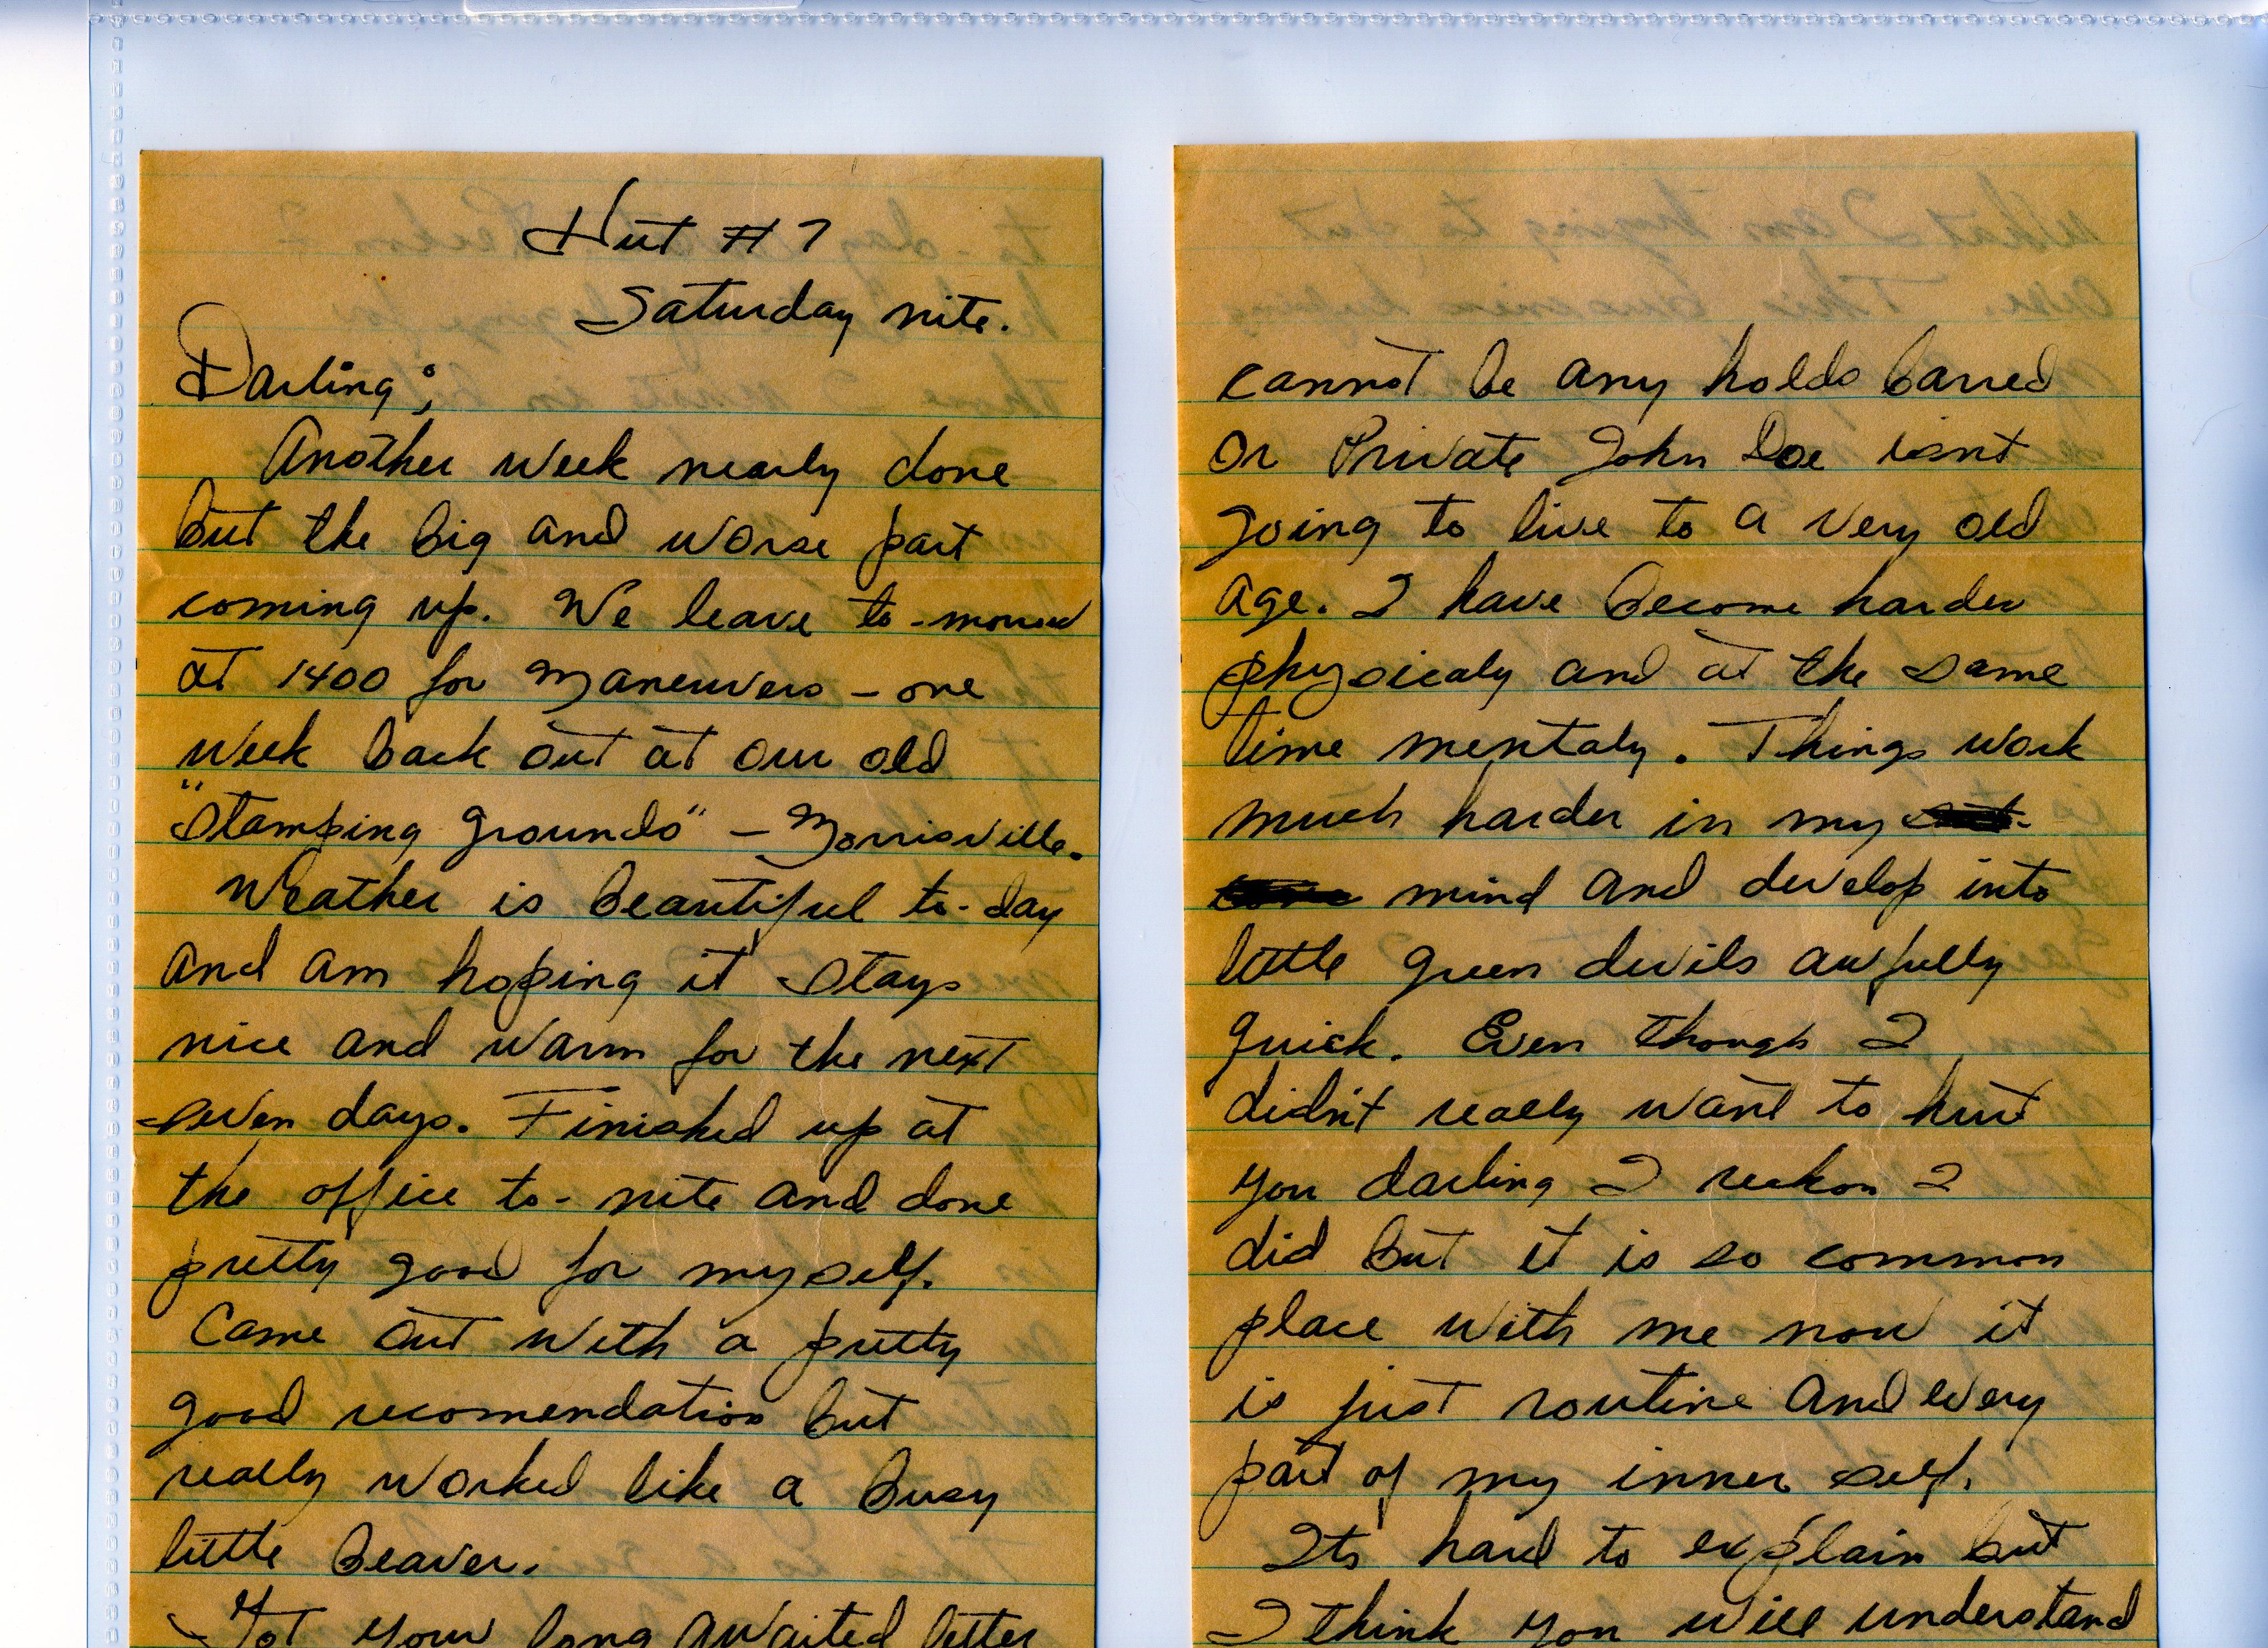 Hut #7
Saturday nite.
Darling;
Another week nearly done
but the big and worse part
coming up. We leave to-morrow
at 1400 for Maneuvers - one
week back out at our old
"Stamping grounds" - Morrisville.
Weather is beautiful to-day
and am hoping it stays
nice and warm for the next
seven days. Finished up at
the office to-nite and done
pretty good for myself.
Came out with a pretty
good recomendation but
really worked like a busy
little beaver.
Got your long awaited letter
cannot be any holds barred
or Private John Doe isnt
going to live to a very old
age. I have become harder
physicaly and at the same
time mentaly. Things work
much harder in my
mind and develop into
little green devils awfully
quick. Even though I
didn't really want to hurt
you darling I reckon I
did but it is so common
place with me now it
is just routine and every
part of my inner self.
Its hard to explain but
I think you will understand